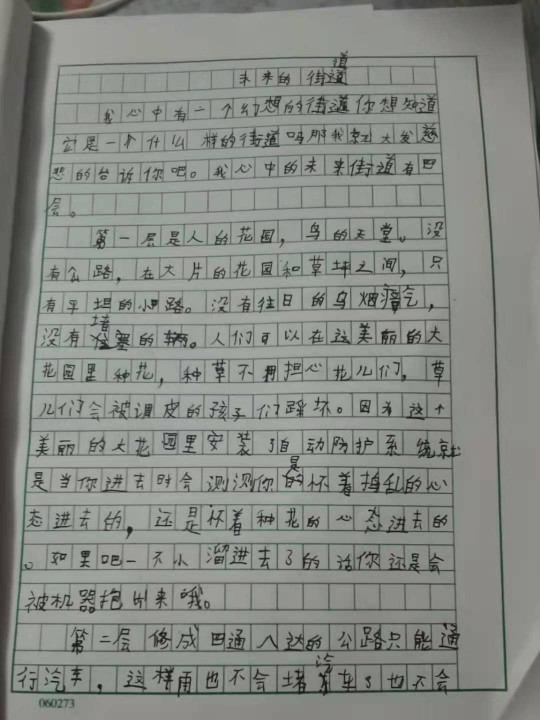 未来的街道
我心中有一个幻想的街道你想知道
它是一个什么样的街道吗那我就大发慈
悲的告诉你吧。我心中的未来街道有四
层。
第一层是人的花园，鸟的天堂。没
有公路，在大片的花园和草坪之间，只
有平坦的小路。没有往日的乌烟瘴气，
没有堵塞的车辆。人们可以在这美丽的大
花园里种花，种草不用担心花儿们，草
儿们会被调皮的孩子们踩坏。因为这个
美丽的大花园里安装了自动防护系统就
是当你进去时会测测你是的怀着捣乱的心
态进去的，还是怀着种花的心态进去的
。如果吧一不小溜进去了的话你还是会
被机器抱出来哦。
第二层修成四通八达的公路只能通
行汽车，这样再也不会堵汽车了也不会
060273